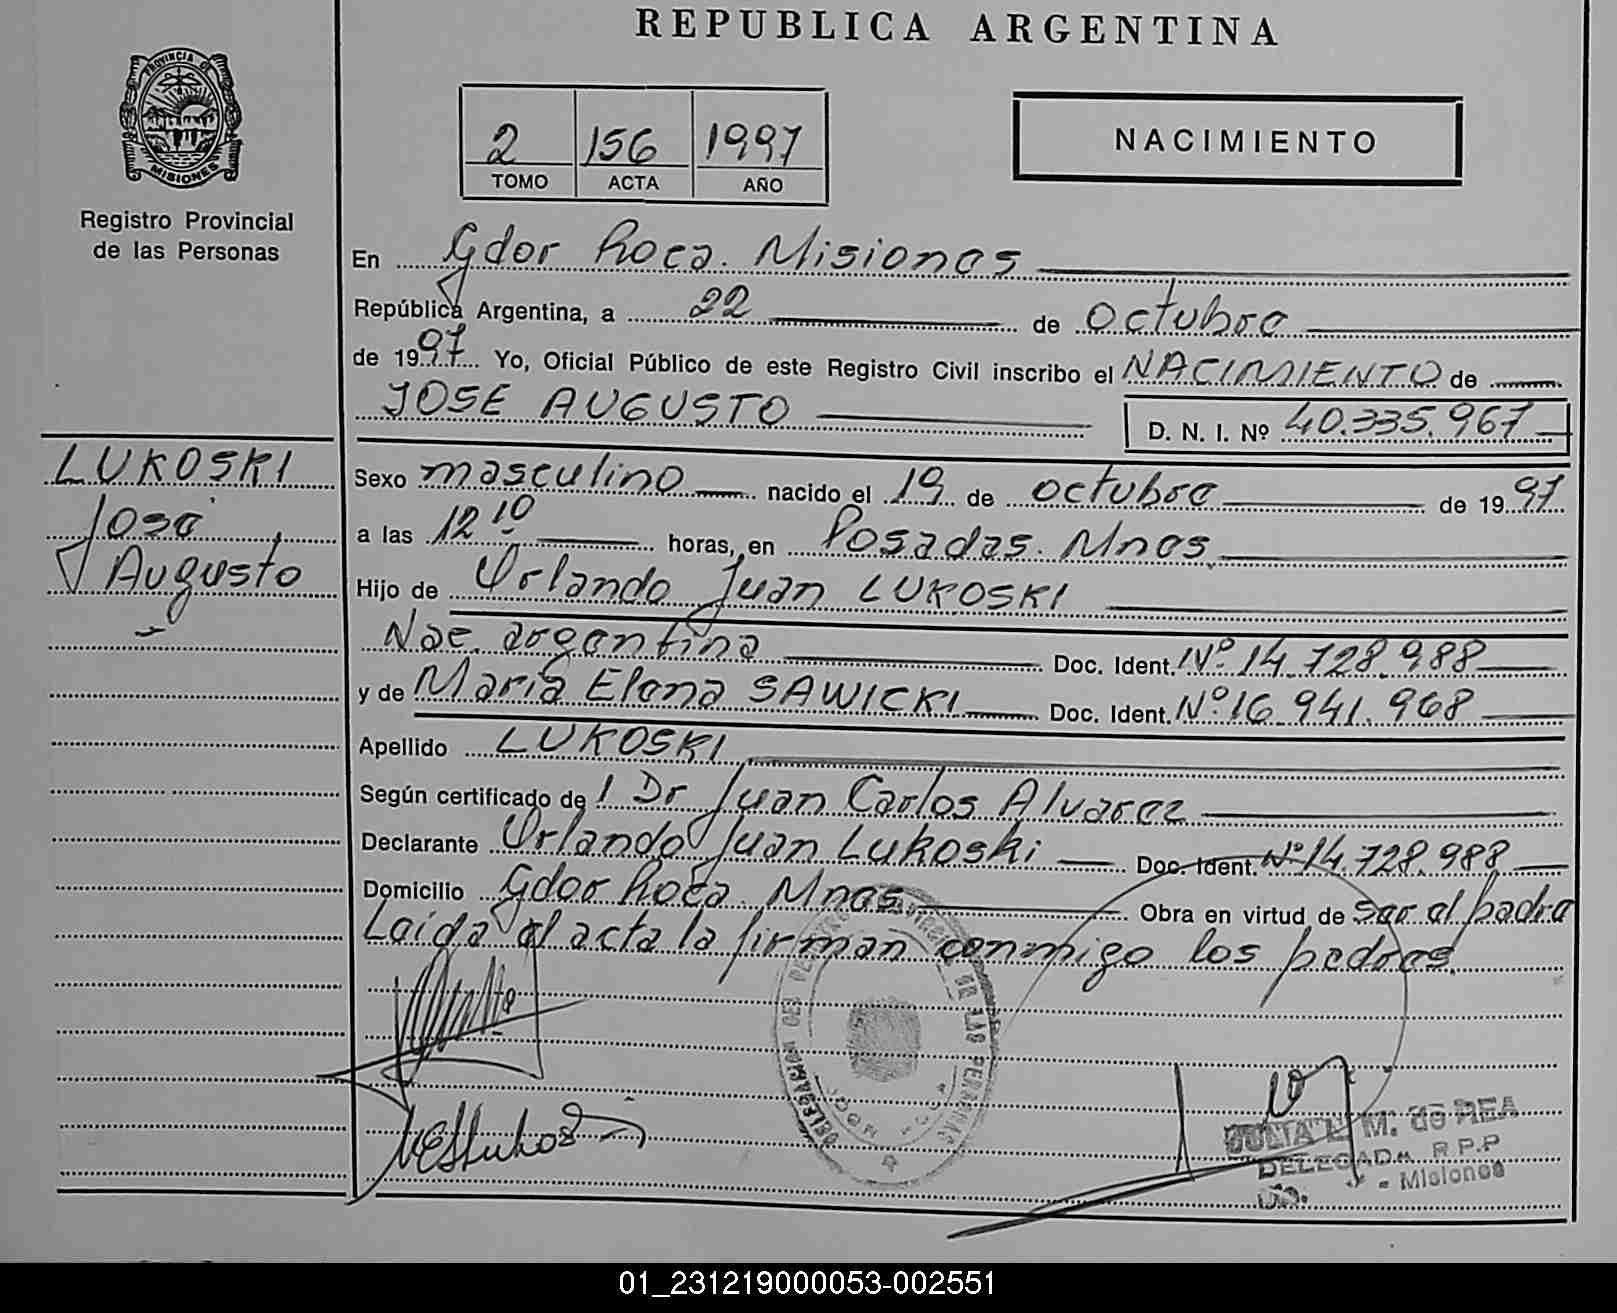 REPUBLICA ARGENTINA
PROVINCIA DE
MISIONES
Registro Provincial
de las Personas
2 156 1997
TOMO ACTA AÑO
NACIMIENTO
En Gdor Roca. Misiones
República Argentina, a 22 de octubre
de 1997 Yo, Oficial Público de este Registro Civil inscribo el NACIMIENTO de
JOSE AUGUSTO D. N. I. Nº 40.335.967
LUKOSKI
José
Augusto
Sexo masculino nacido el 19 de octubre de 1997
a las 12 10 horas, en Posadas. Mnes
Hijo de Orlando Juan LUKOSKI
Nac. argentina Doc. Ident. Nº 14.728.988
y de María Elena SAWICKI Doc. Ident. Nº 16.941.968
Apellido LUKOSKI
Según certificado de l Dr Juan Carlos Alvarez
Declarante Orlando Juan Lukoski Doc. Ident. Nº 14.728.988
Domicilio Gdor Roca. Mnes Obra en virtud de ser el padre
Leída el acta la firman conmigo los padres
DE LAS PERSONAS
M. de REA
DELEGADA R.P.P
- Misiones
01_231219000053-002551